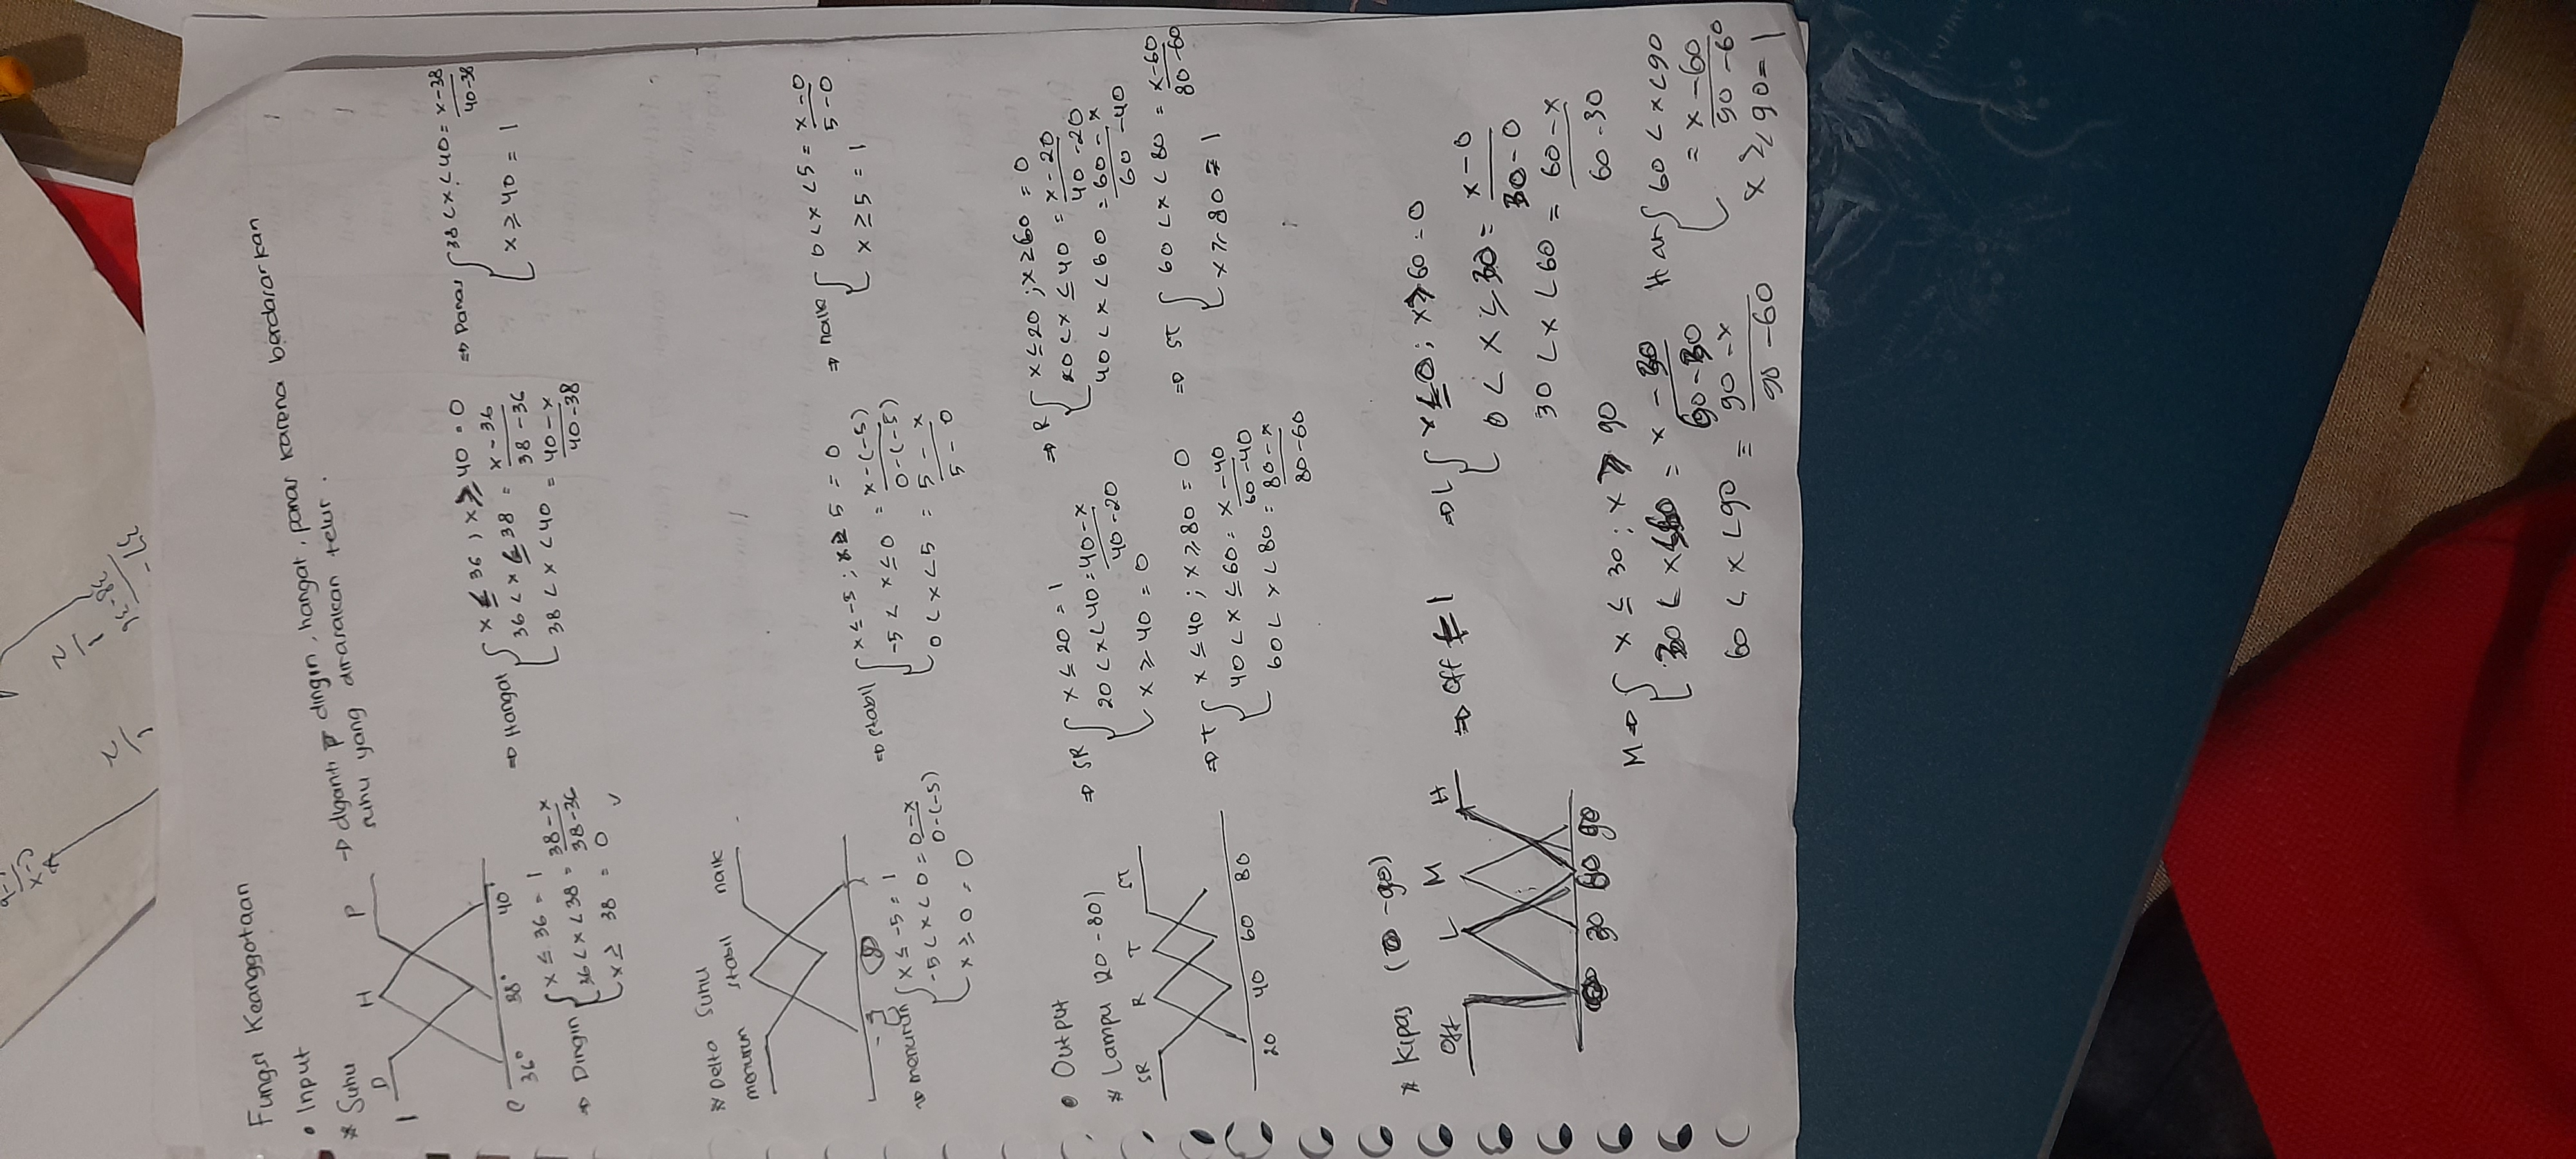 Fungsi Keanggotaan
• Input
* Suhu
→ diganti dingin, hangat, panas karena berdasarkan
suhu yang dirasakan telur.
D H P
1
0
36° 38° 40°
⇒ Dingin { x ≤ 36 = 1
36 < x < 38 = 38-x / 38-36
x ≥ 38 = 0 ✓
⇒ Hangat { x ≤ 36 ; x ≥ 40 = 0
36 < x ≤ 38 = x-36 / 38-36
38 < x < 40 = 40-x / 40-38
⇒ Panas { 38 < x < 40 = x-38 / 40-38
x ≥ 40 = 1
* Delta Suhu
menurun stabil naik
⇒ menurun { x ≤ -5 = 1
-5 < x < 0 = 0-x / 0-(-5)
x ≥ 0 = 0
⇒ stabil { x ≤ -5 ; x ≥ 5 = 0
-5 < x ≤ 0 = x-(-5) / 0-(-5)
0 < x < 5 = 5-x / 5-0
⇒ naik { 0 < x < 5 = x-0 / 5-0
x ≥ 5 = 1
• Output
* Lampu (20-80)
SR R T ST
20 40 60 80
⇒ SR { x ≤ 20 = 1
20 < x < 40 = 40-x / 40-20
x ≥ 40 = 0
⇒ R { x ≤ 20 ; x ≥ 60 = 0
20 < x ≤ 40 = x-20 / 40-20
40 < x < 60 = 60-x / 60-40
⇒ T { x ≤ 40 ; x ≥ 80 = 0
40 < x ≤ 60 = x-40 / 60-40
60 < x < 80 = 80-x / 80-60
⇒ ST { 60 < x < 80 = x-60 / 80-60
x ≥ 80 = 1
* Kipas (0-90)
Off L M H
30 60 90
⇒ Off = 1
⇒ L { x ≤ 0 ; x ≥ 60 = 0
0 < x ≤ 30 = x-0 / 30-0
30 < x < 60 = 60-x / 60-30
M ⇒ { x ≤ 30 ; x ≥ 90
30 < x ≤ 60 = x-30 / 60-30
60 < x < 90 = 90-x / 90-60
H ⇒ { 60 < x < 90
= x-60 / 90-60
x ≥ 90 = 1